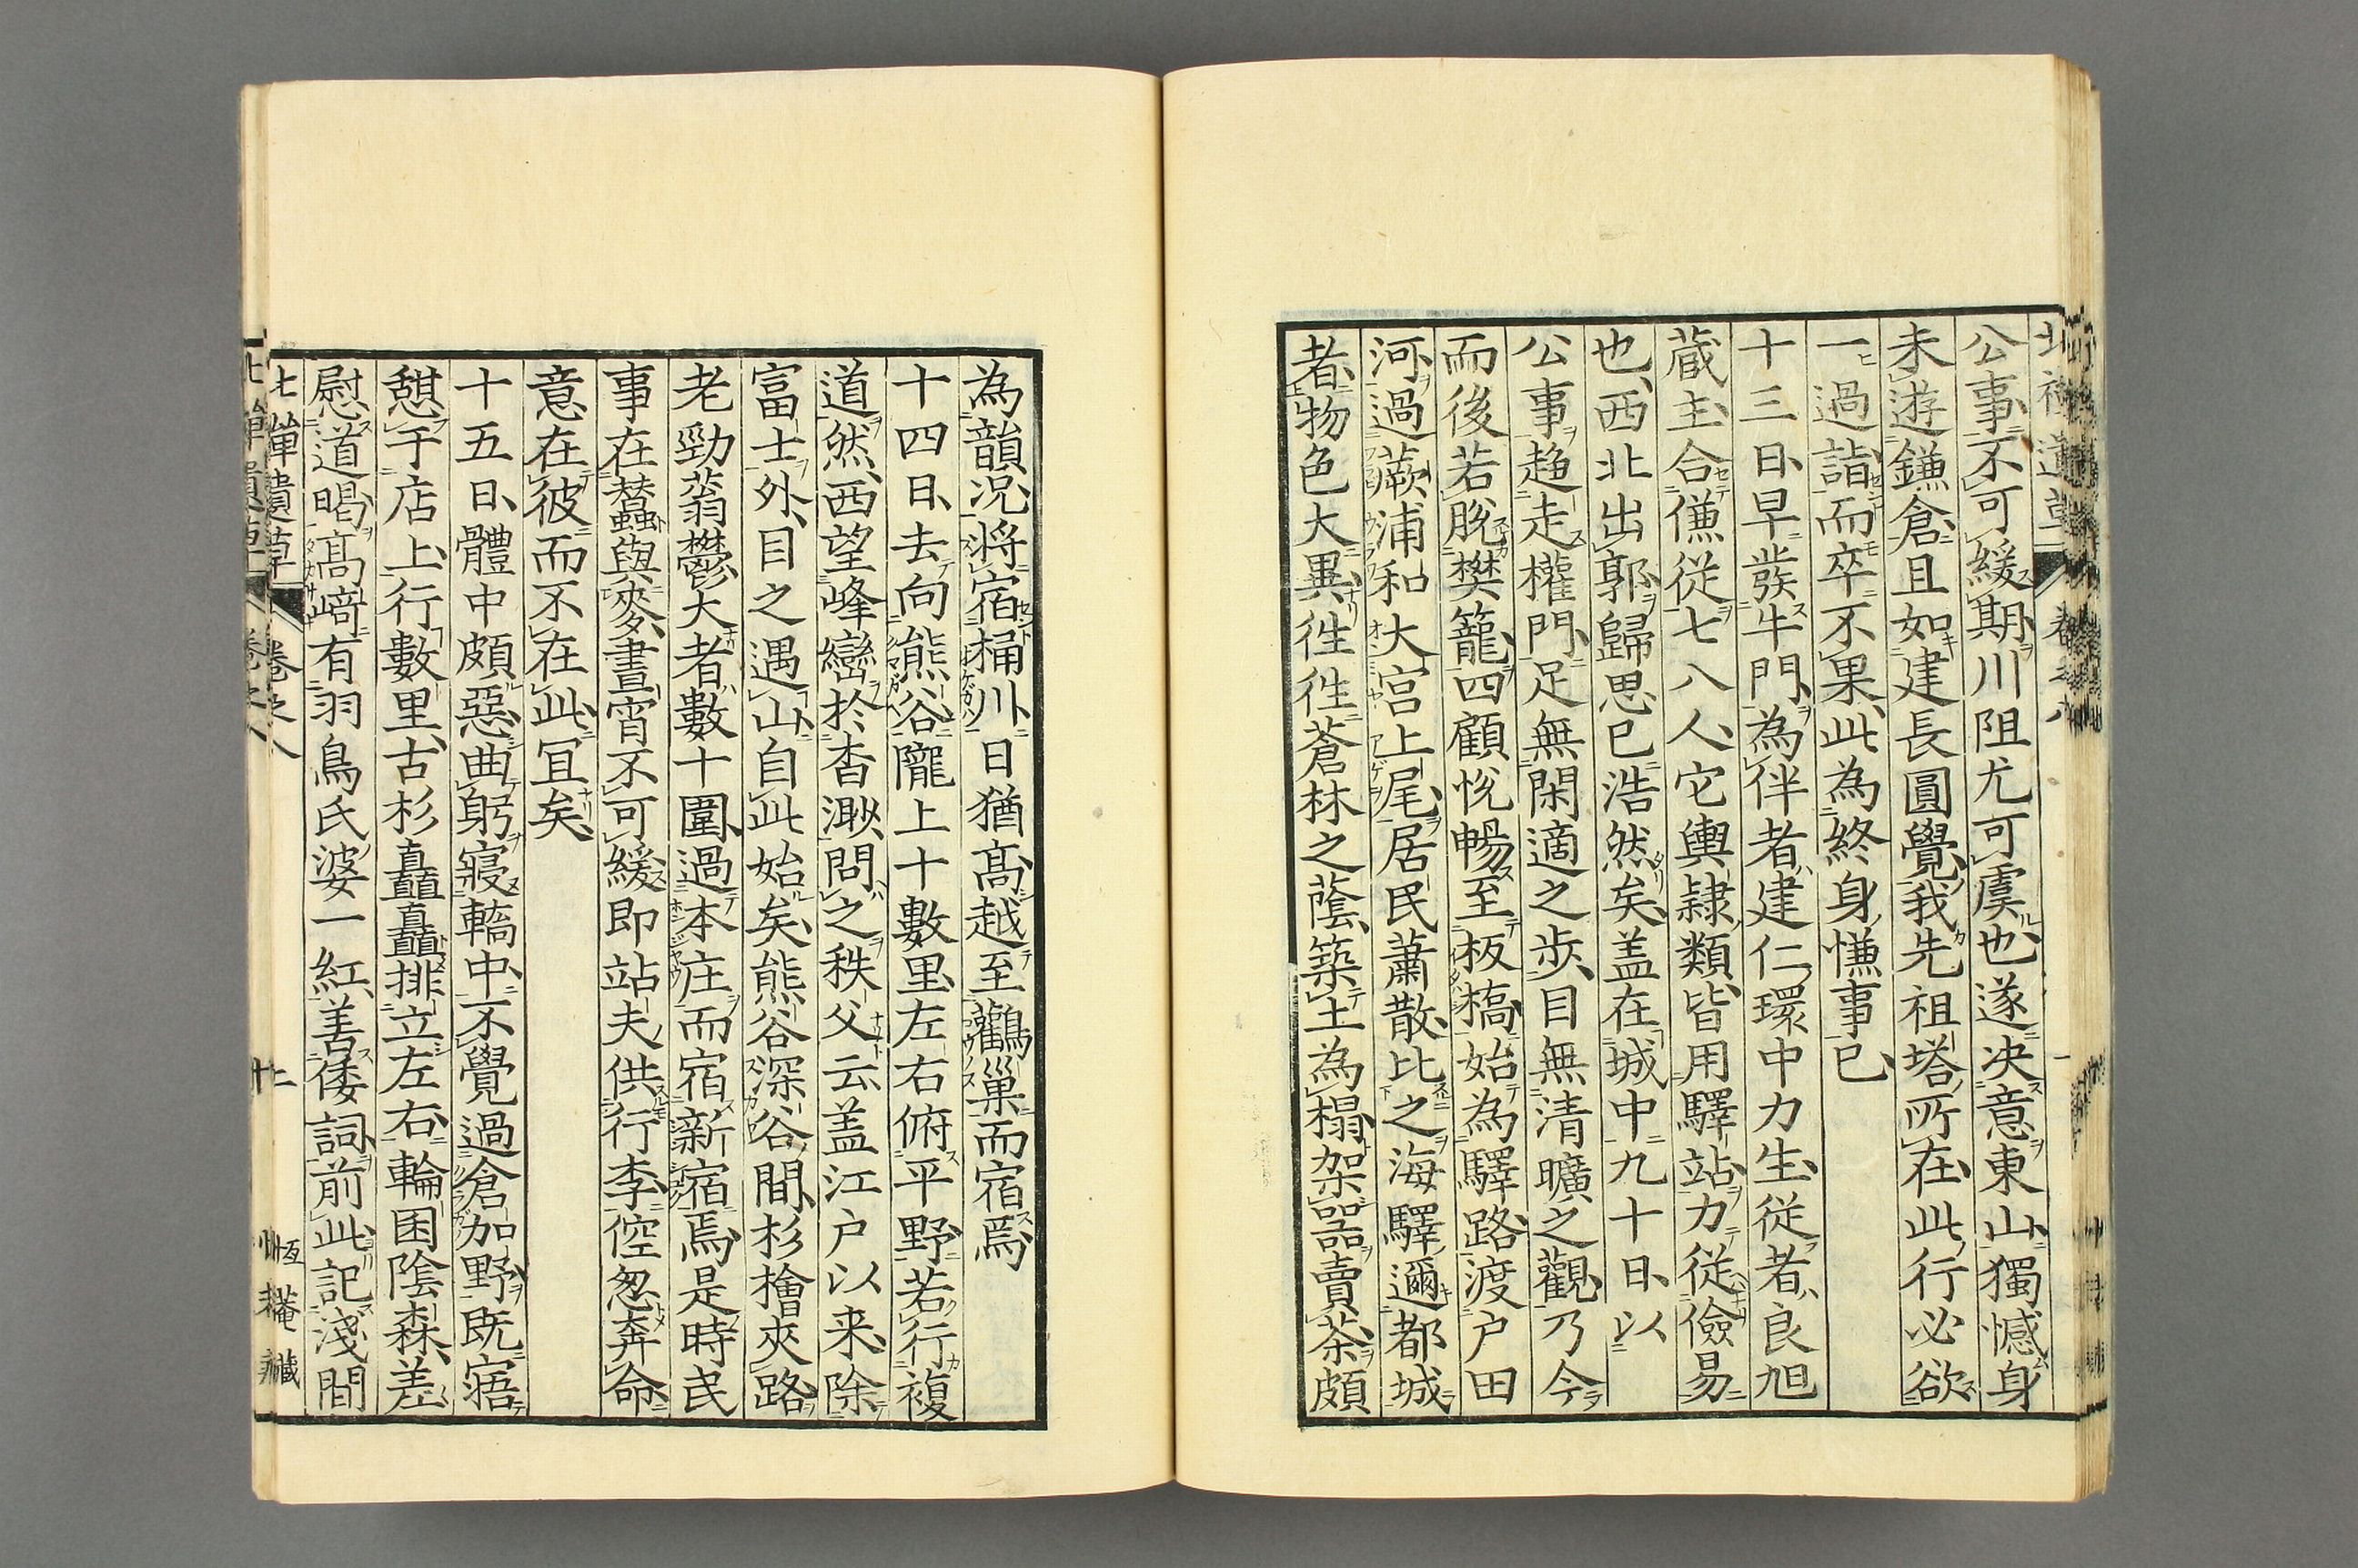 公事不可緩期川阻尤可虞也遂决意東山獨憾身
未遊鎌倉且如建長圓覺我先祖塔所在此行必欲
一過詣而卒不果此為終身慊事已
十三日早發牛門為伴者建仁環中力生從者良旭
蔵主合傔從七八人它輿隷類皆用驛站力從儉易
也西北出郭歸思已浩然矣盖在城中九十日以
公事趍走權門足無閑適之歩目無清曠之觀乃今
而後若脱樊籠四顧恱暢至板橋始為驛路渡戸田
河過蕨浦和大宮上尾居民蕭散比之海驛邇都城
者物色大異徃徃蒼林之蔭築土為榻架噐賣茶頗
為韻况将宿桶川日猶髙越至鸛巢而宿焉
十四日去向熊谷隴上十數里左右俯平野若行複
道然西望峰巒於杳渺問之秩父云盖江戸以来除
富士外目之遇山自此始矣熊谷深谷間杉檜夾路
老勁蓊鬱大者數十圍過本庄而宿新宿焉是時民
事在蠶與麥晝宵不可緩即站夫供行李倥怱奔命
意在彼而不在此冝矣
十五日體中頗惡曲躬寢轎中不覺過倉加野既寤
憇于店上行數里古杉矗矗排立左右輪囷陰森差
慰道暍髙﨑有羽鳥氏婆一紅善倭詞前此記淺間
北禅遺草 卷之八 十二 恆菴藏